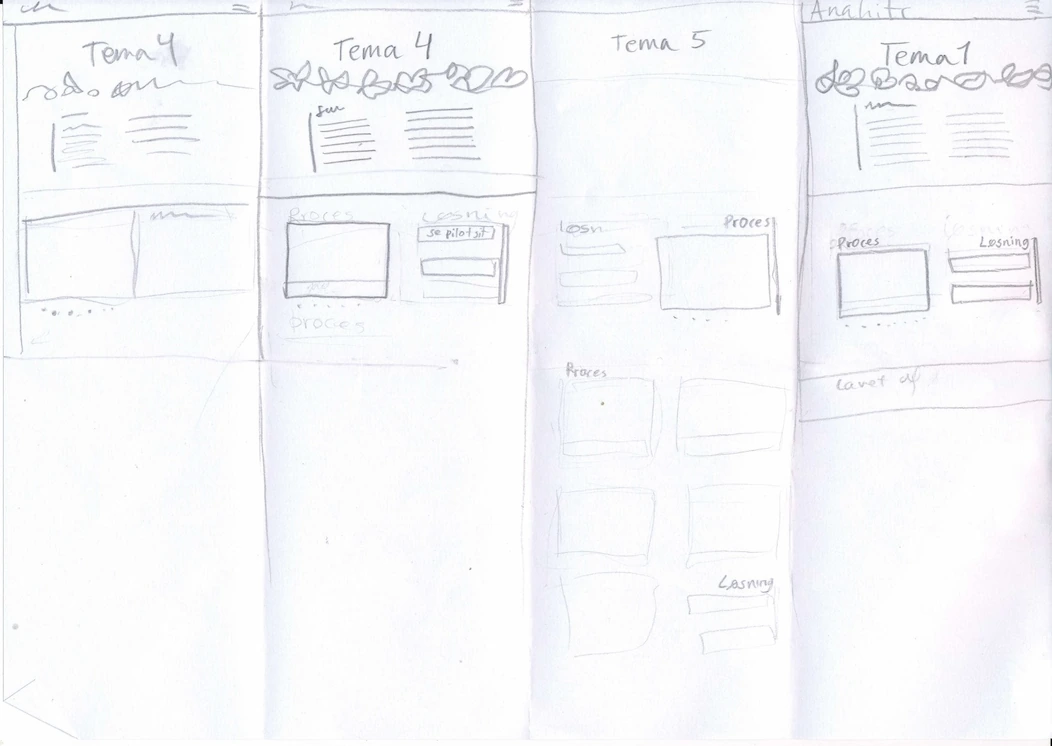 Tema 4
Tema 4
Proces
Løsning
se pilotsit
Proces
Tema 5
Løsn
Proces
Proces
Løsning
Anahitr
Tema 1
Proces
Løsning
Lavet af